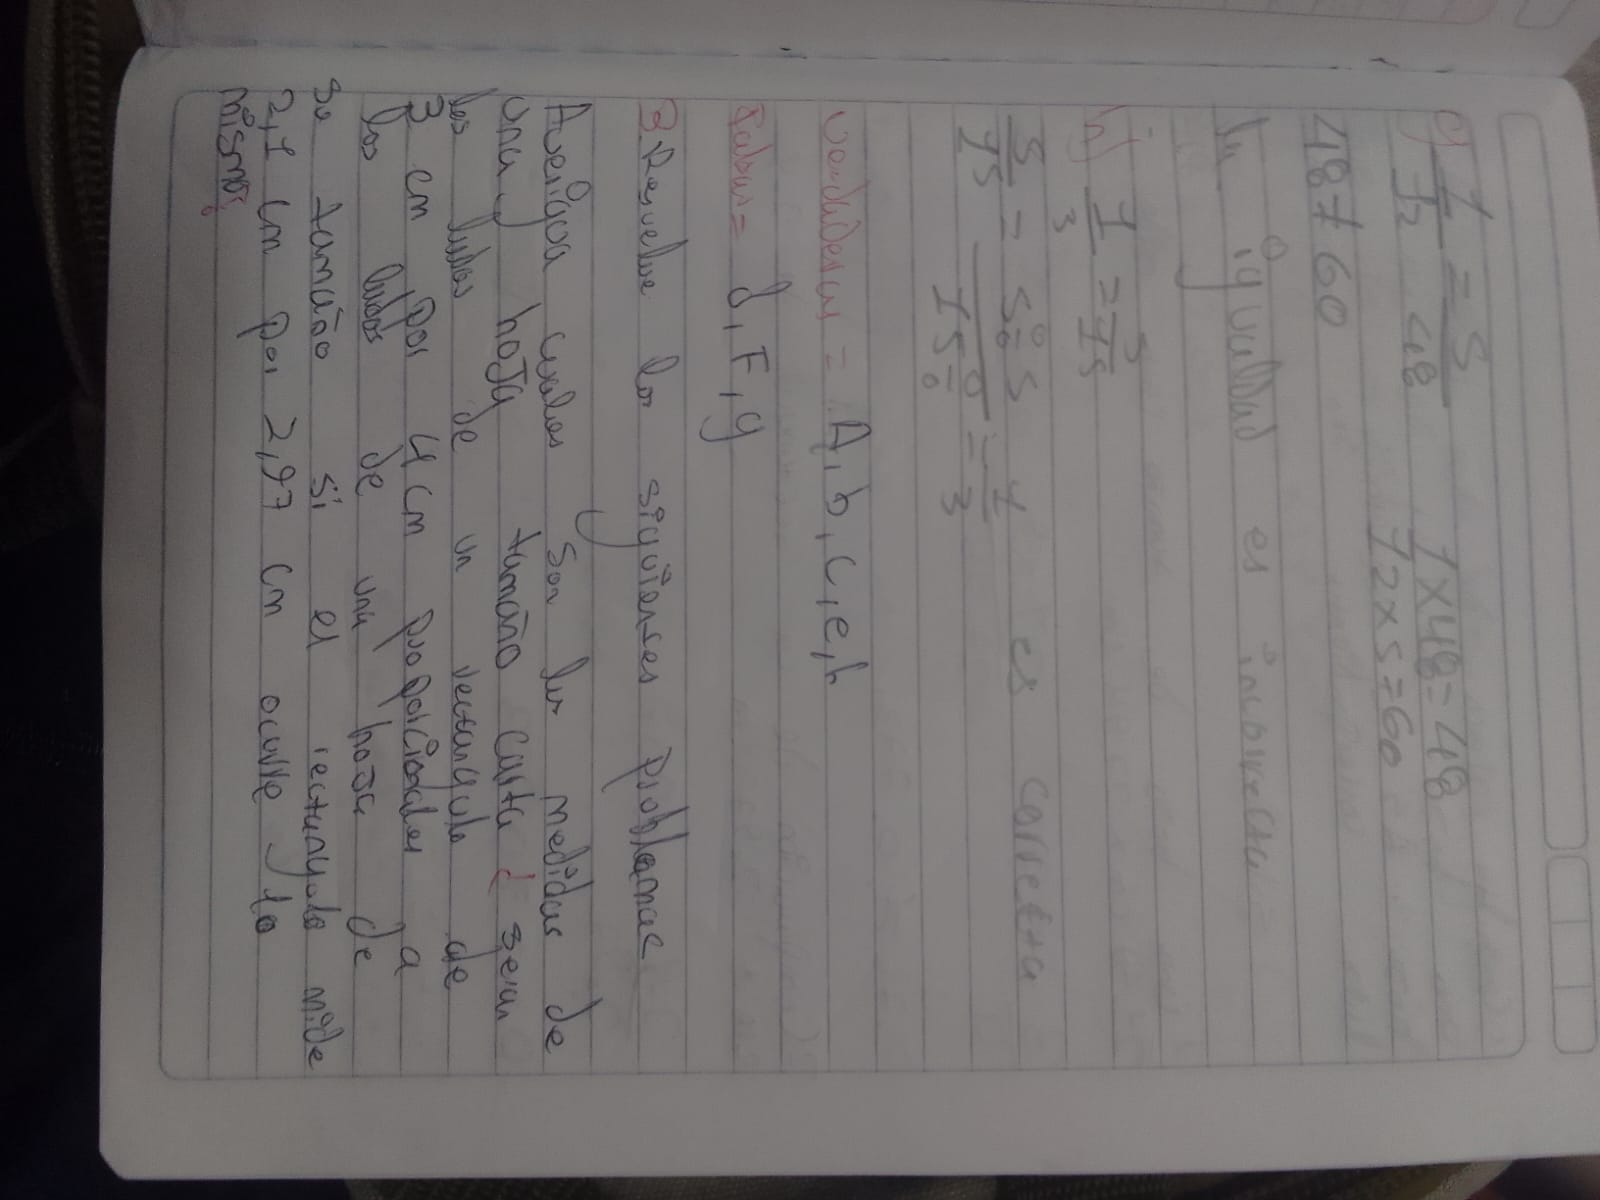 g) 1/12 = 5/48 1x48=48
12x5=60
48≠60
la igualdad es incorrecta
h) 1/3 = 5/15
5/15 = 5÷5/15÷ = 1/3 es correcta
verdaderas = A, b, c, e, h
Falsas = d, F, g
3. Resuelve los siguientes problemas
Averigua cuales son las medidas de
una hoja tamaño carta ¿ seran
los lados de un rectangulo de
3 cm por 4 cm proporcionales a
los lados de una hoja de
se tamaño si el rectangulo mide
2,1 cm por 2,97 cm ocurre lo
mismo?